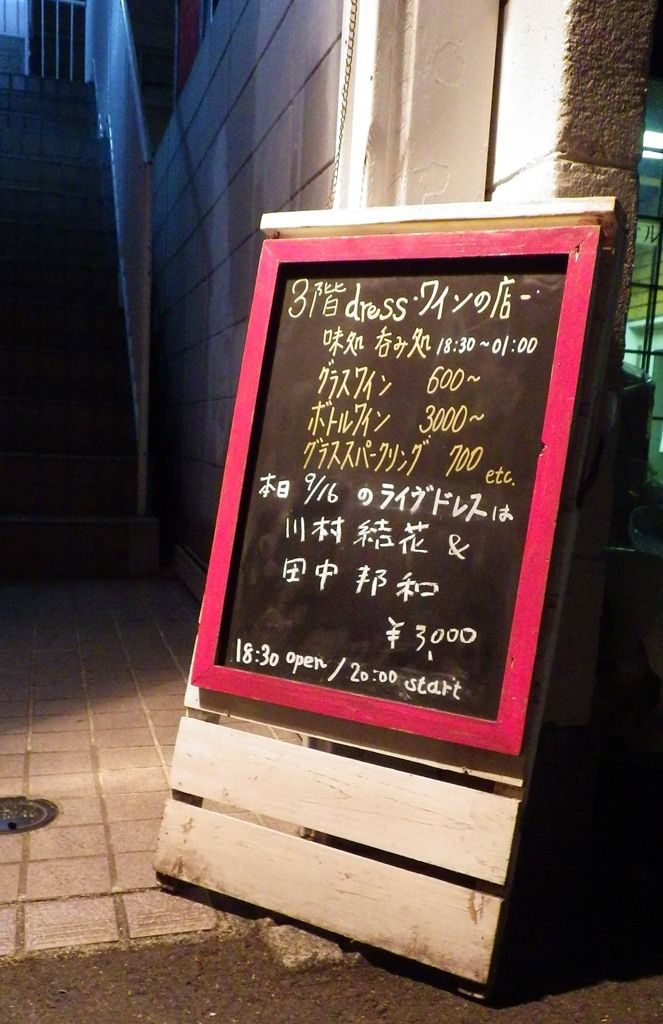 3階 dress・ワインの店ー
味処 呑み処 18:30～01:00
グラスワイン 600～
ボトルワイン 3000～
グラススパークリング 700
etc.
本日 9/16 のライヴドレスは
川村 結花 &
田中 邦和
¥3,000
18:30 open / 20:00 start